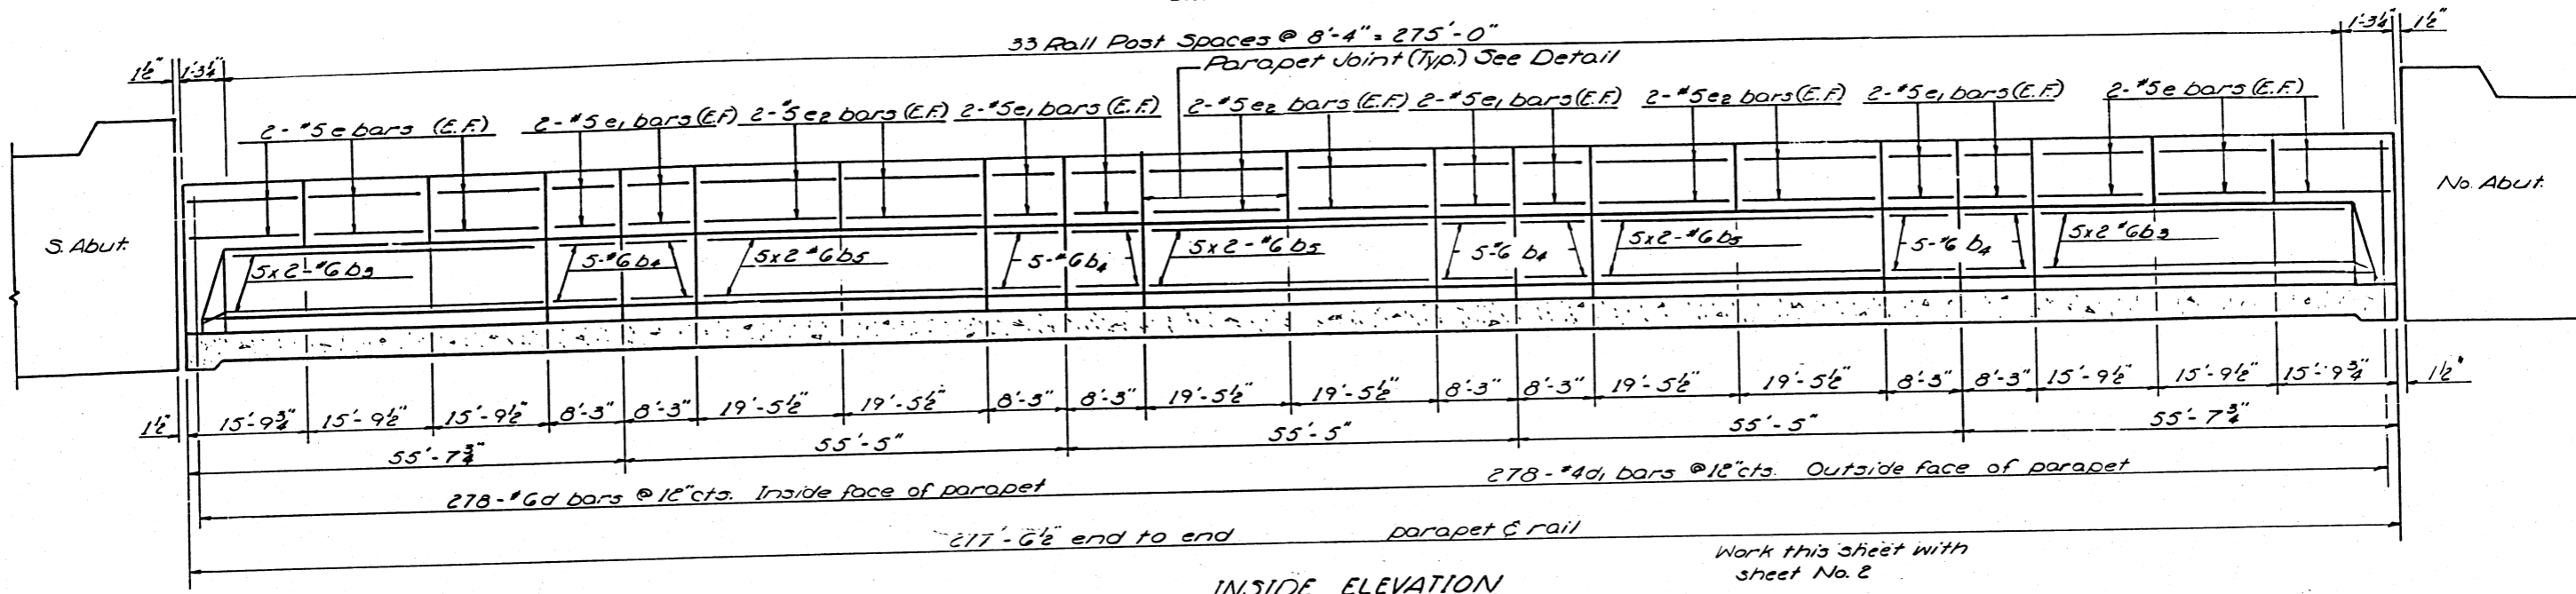 33 Rail Post Spaces @ 8'-4" = 275'-0"
1½" 1'-3¼"
1'-3¼" 1½"
Parapet Joint (Typ.) See Detail
2-#5 e bars (E.F.) 2-#5 e1 bars (E.F.) 2-#5 e2 bars (E.F.) 2-#5 e1 bars (E.F.) 2-#5 e2 bars (E.F.) 2-#5 e1 bars (E.F.) 2-#5 e2 bars (E.F.) 2-#5 e1 bars (E.F.) 2-#5 e bars (E.F.)
S. Abut.
No. Abut.
5x2-#6 b3 5-#6 b4 5x2 #6 b5 5-#6 b4 5x2-#6 b5 5-6 b4 5x2-#6 b5 5-#6 b4 5x2 #6 b3
1½" 15'-9¾" 15'-9½" 15'-9½" 8'-3" 8'-3" 19'-5½" 19'-5½" 8'-3" 8'-3" 19'-5½" 19'-5½" 8'-3" 8'-3" 19'-5½" 19'-5½" 8'-3" 8'-3" 15'-9½" 15'-9½" 15'-9¾" 1½"
55'-7¾" 55'-5" 55'-5" 55'-5" 55'-7¾"
278-#6d bars @ 12"cts. Inside face of parapet
278-#4d1 bars @ 12"cts. Outside face of parapet
277'-6½ end to end parapet & rail
Work this sheet with
sheet No. 2
INSIDE ELEVATION